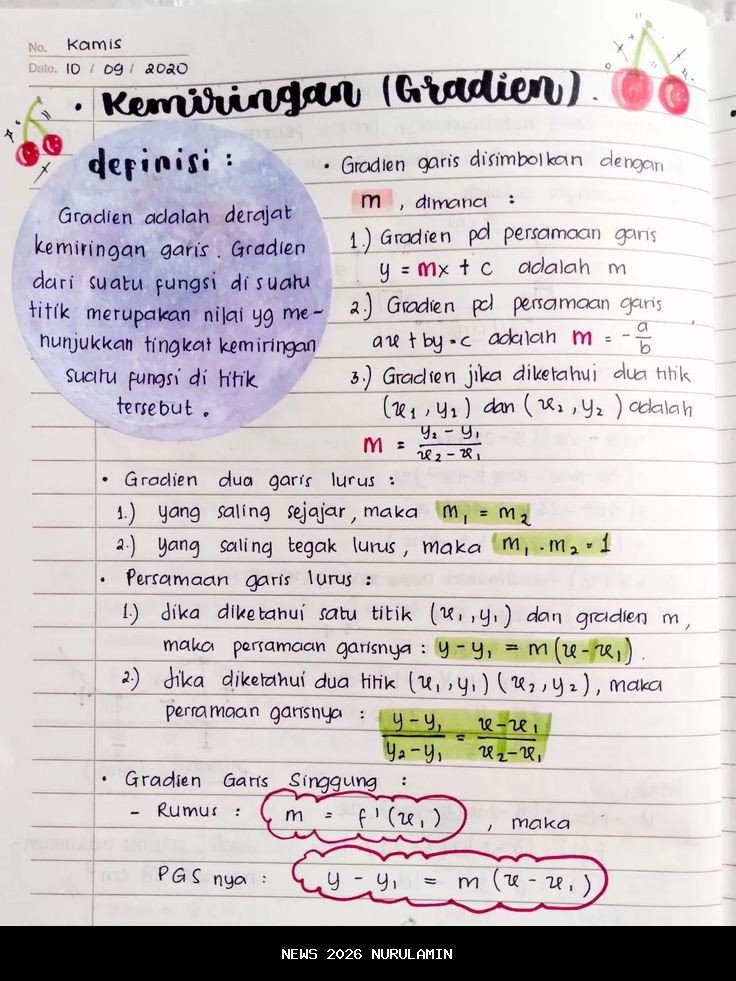 No. Kamis
Date. 10 / 09 / 2020
• Kemiringan (Gradien).
definisi :
Gradien adalah derajat
kemiringan garis. Gradien
dari suatu fungsi di suatu
titik merupakan nilai yg me-
nunjukkan tingkat kemiringan
suatu fungsi di titik
tersebut.
• Gradien garis disimbolkan dengan
m, dimana :
1.) Gradien pd persamaan garis
y = mx + c adalah m
2.) Gradien pd persamaan garis
ax + by = c adalah m = -a/b
3.) Gradien jika diketahui dua titik
(x₁, y₁) dan (x₂, y₂) adalah
m = y₂ - y₁ / x₂ - x₁
• Gradien dua garis lurus :
1.) yang saling sejajar, maka m₁ = m₂
2.) yang saling tegak lurus, maka m₁ . m₂ = 1
• Persamaan garis lurus :
1.) Jika diketahui satu titik (x₁, y₁) dan gradien m,
maka persamaan garisnya : y - y₁ = m (x - x₁).
2.) Jika diketahui dua titik (x₁, y₁) (x₂, y₂), maka
persamaan garisnya : y - y₁ / y₂ - y₁ = x - x₁ / x₂ - x₁
• Gradien Garis Singgung :
- Rumus : m = f'(x₁), maka
PGS nya : y - y₁ = m (x - x₁)
NEWS 2026 NURULAMIN